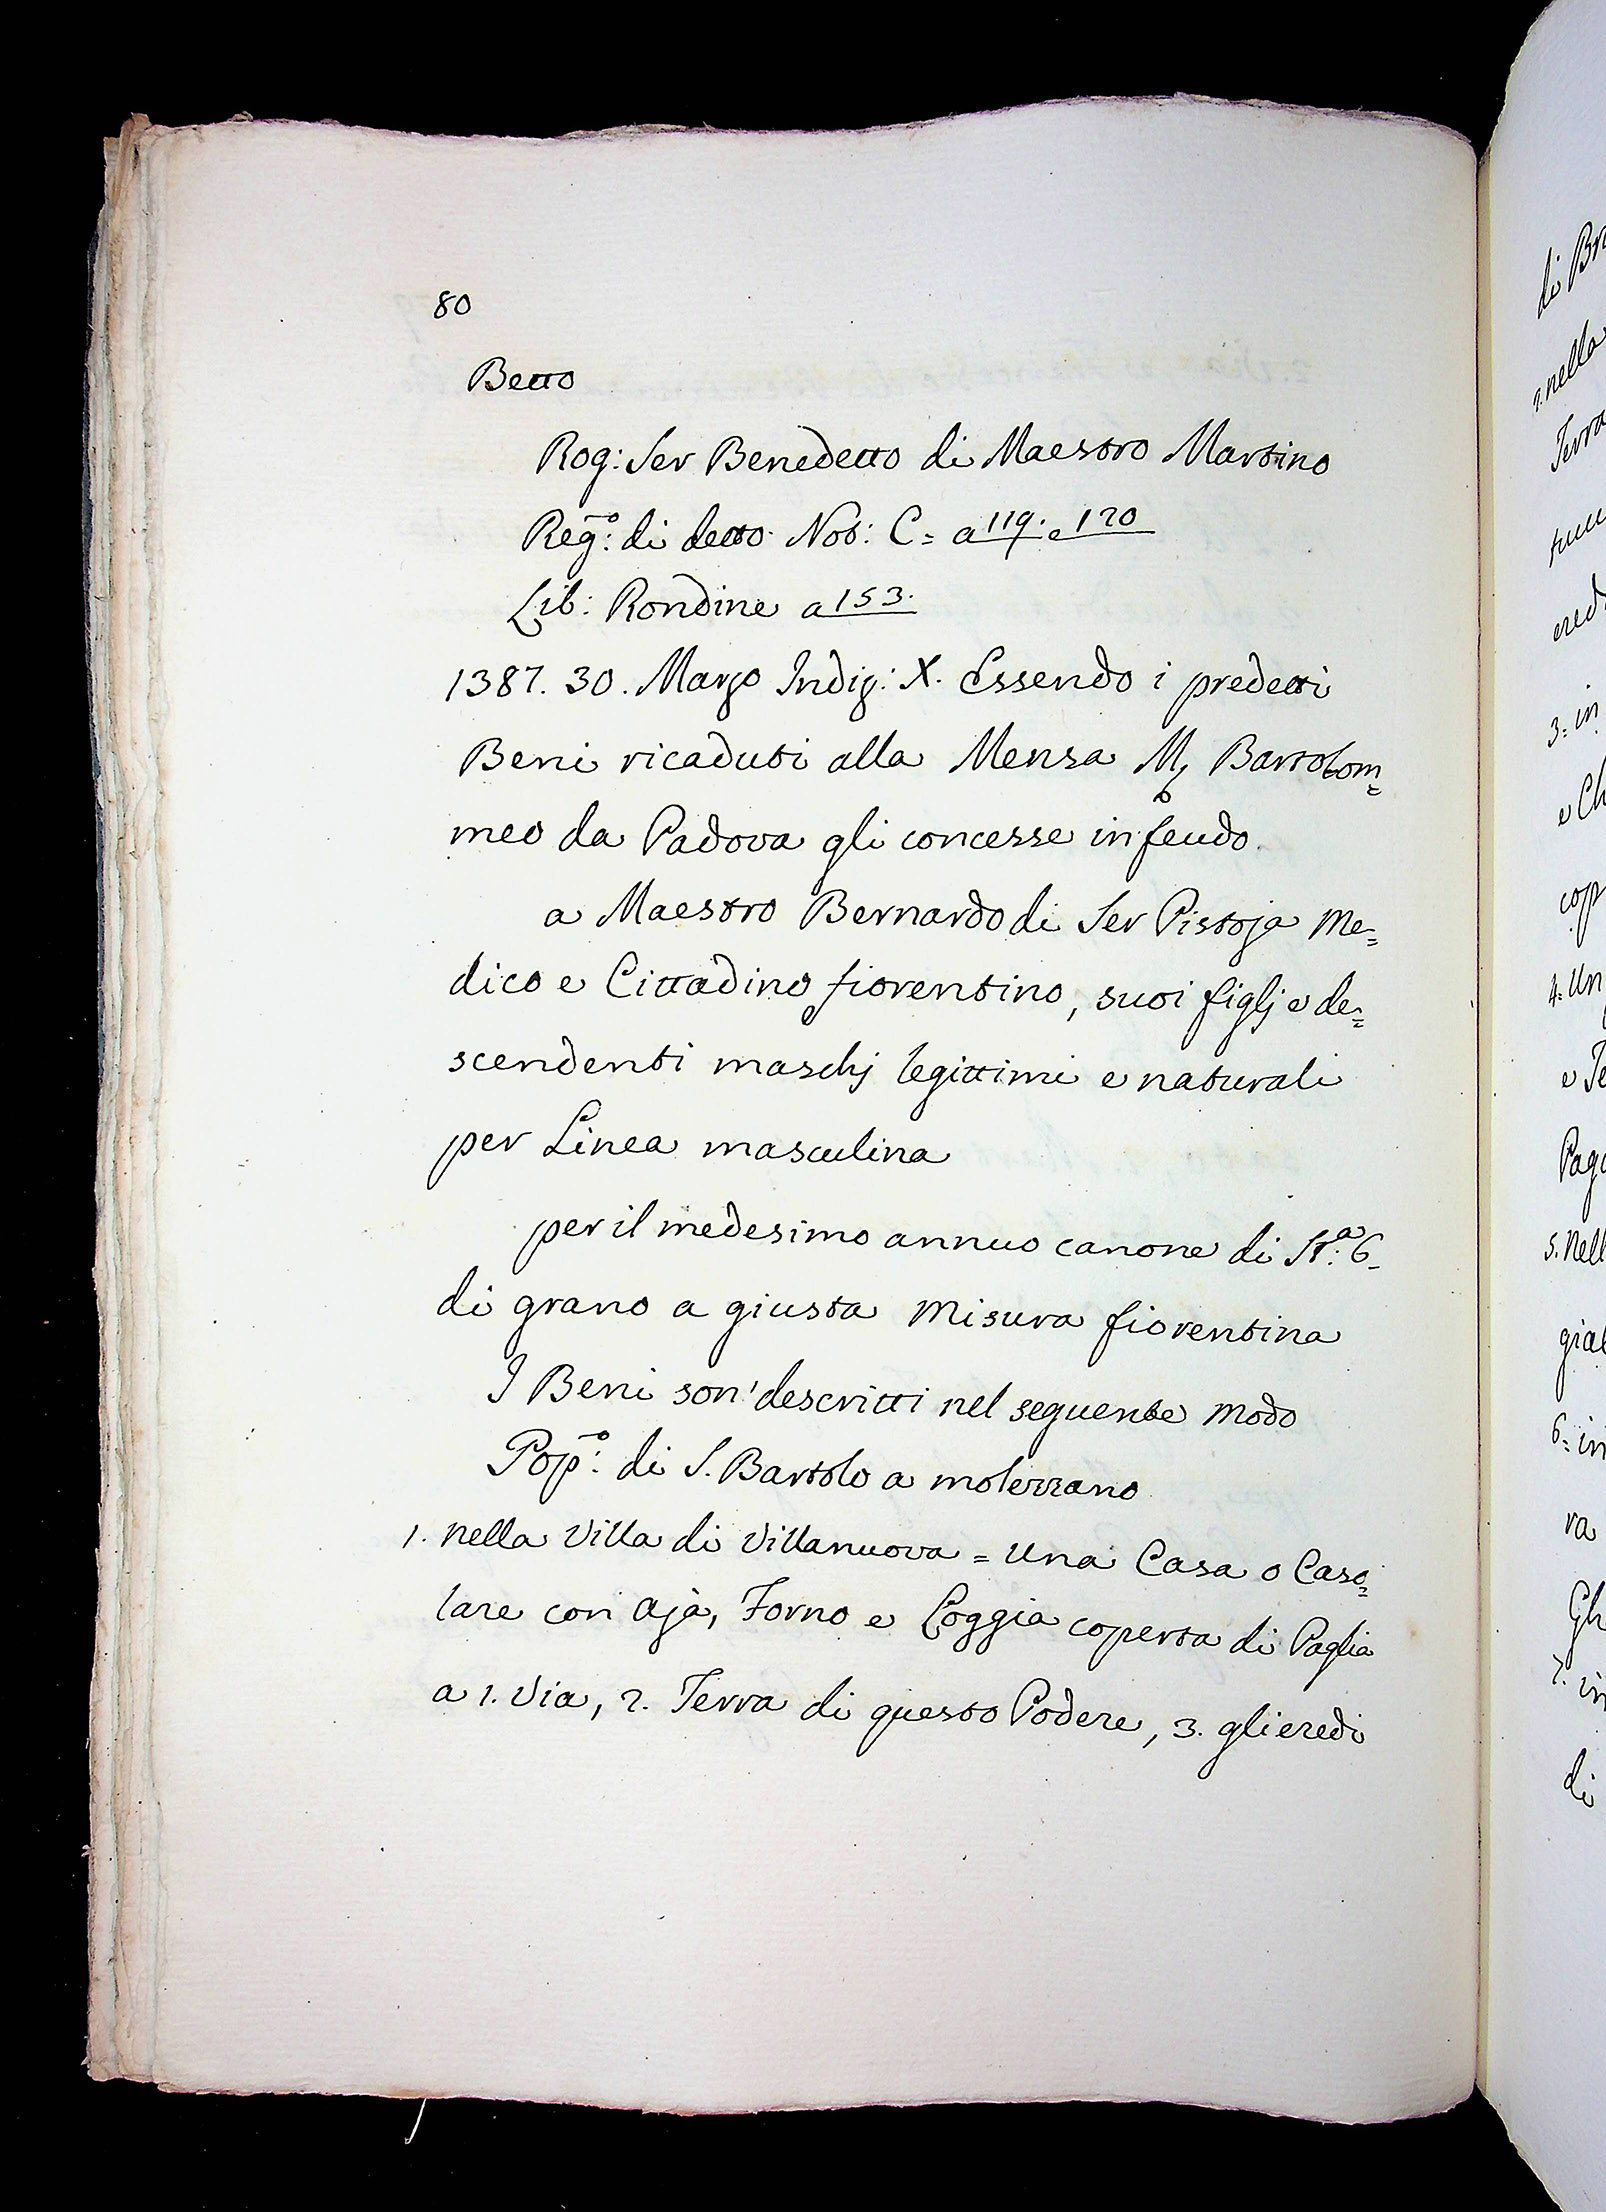 80
Betto
Rog: Ser Benedetto di Maestro Martino
Reg.º: di detto Not: C= a 119. e 120
Lib: Rondine a 153.
1387. 30. Marzo Indiz: X. Essendo i predetti
Beni ricaduti alla Mensa M. Bartolom=
meo da Padova gli concesse in feudo
a Maestro Bernardo di Ser Pistoja Me=
dico e Cittadino fiorentino, suoi figlj e de=
scendenti maschj legittimi e naturali
per Linea masculina
per il medesimo annuo canone di St.ª: 6-
di grano a giusta Misura fiorentina
I Beni son' descritti nel seguente modo
Pop.º: di S. Bartolo a molezzano
1. nella Villa di Villanuova = Una Casa o Caso=
lare con Aja, Forno e Loggia coperta di Paglia
a 1. Via, 2. Terra di questo Podere, 3. gli eredi
di
2. nella
Terra
3= in
e
4= Un
e
5. Nell
6= in
va
7. in
di